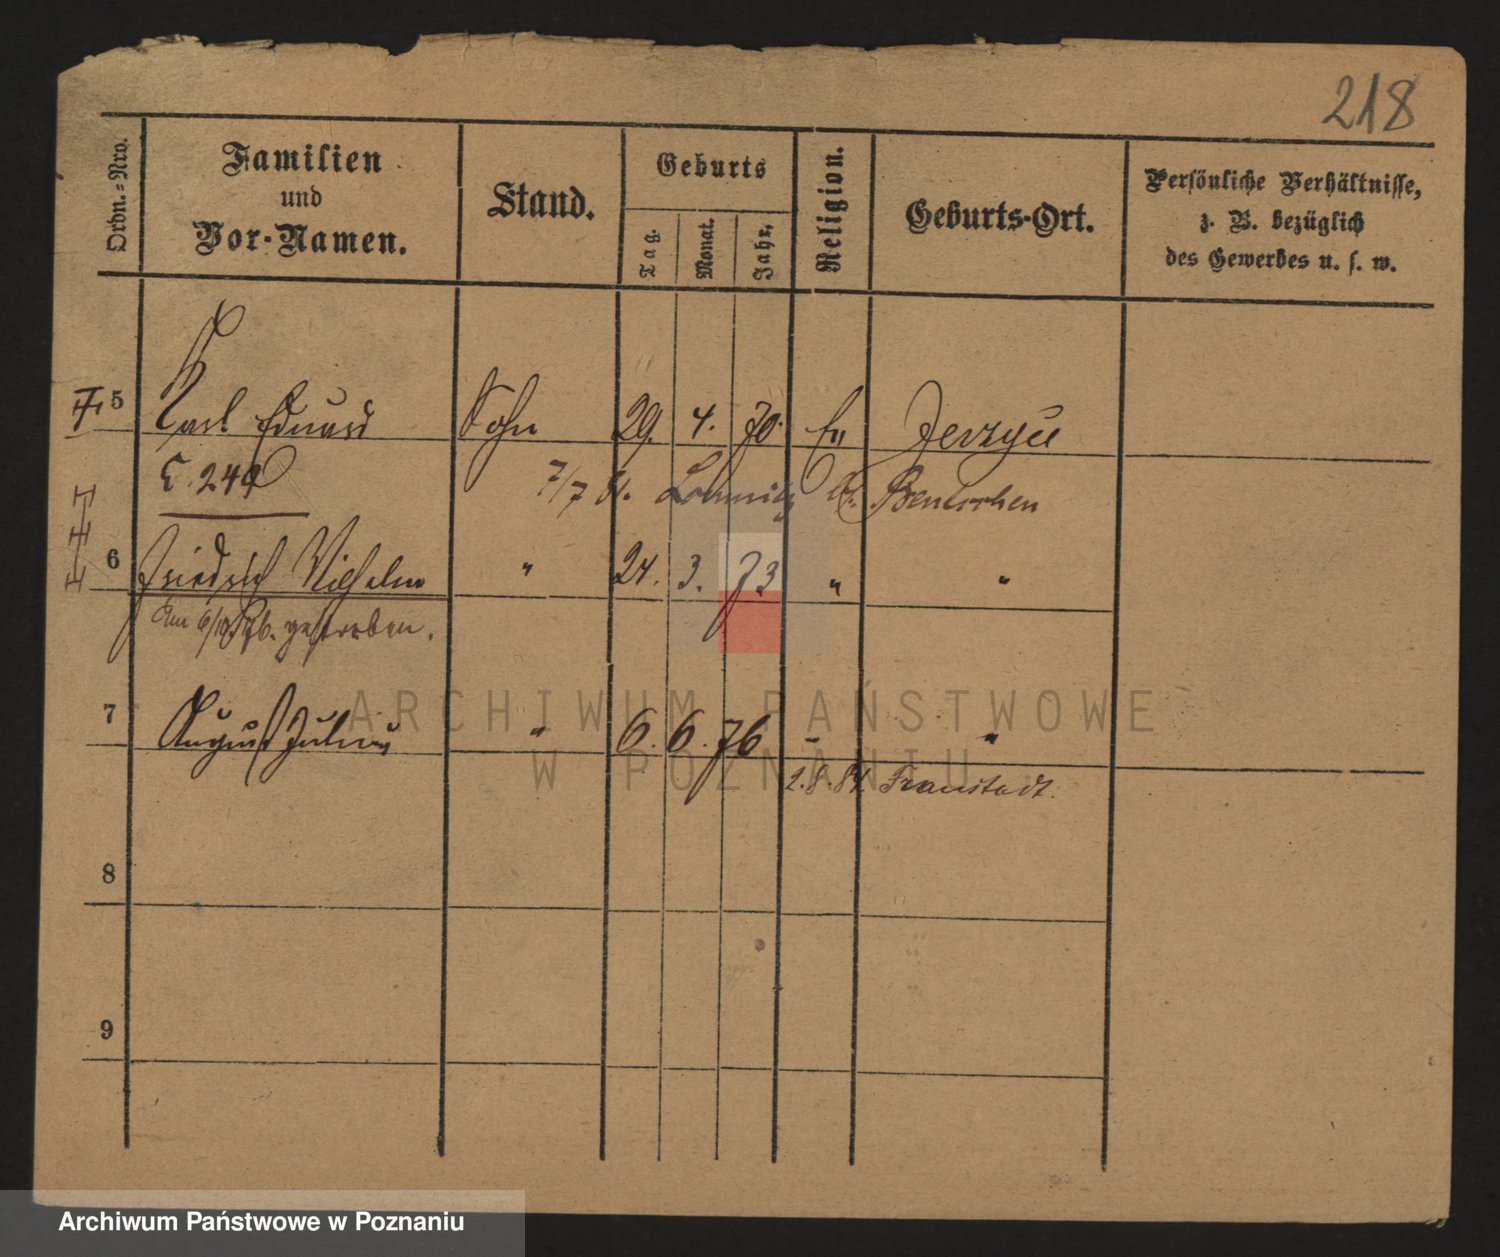 218
Ordn.-Nro.
Familien
und
Vor-Namen.
Stand.
Geburts
Tag.
Monat.
Jahr.
Religion.
Geburts-Ort.
Persönliche Verhältnisse,
z. B. bezüglich
des Gewerbes u. s. w.
5 Karl Eduard Sohn 29. 4. 70. Ev Jerzyce
C. 249
7/7 91. Lomnitz Kr. Bentschen
6 Friedrich Wilhelm " 24. 3. 73 " "
Am 6/10 76. gestorben.
7 August Julius " 6. 6. 76 " "
2. 8. 84. Fraustadt.
8
9
ARCHIWUM PAŃSTWOWE
W POZNANIU
Archiwum Państwowe w Poznaniu